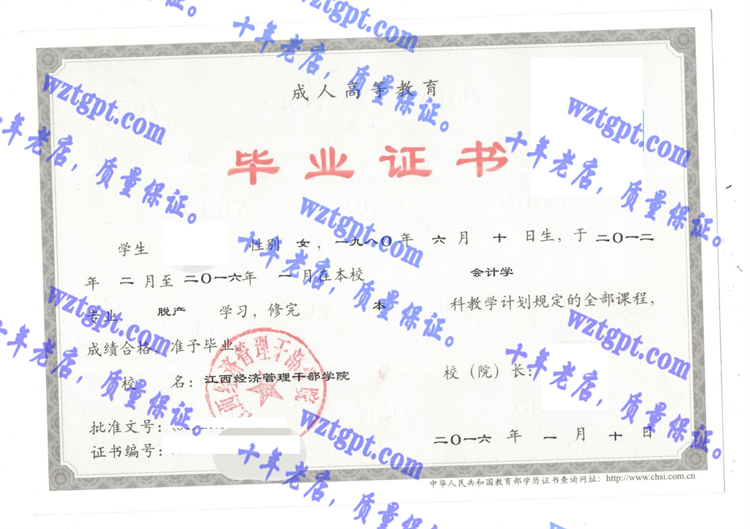 成人高等教育
毕业证书
学生 性别 女，一九八〇年 六 月 十 日生，于 二〇一二
年 二 月至 二〇一六年 一 月在本校 会计学
专业 脱产 学习，修完 本 科教学计划规定的全部课程，
成绩合格，准予毕业。
校 名：江西经济管理干部学院 校（院）长：
批准文号：
证书编号：
二〇一六 年 一 月 十 日
中华人民共和国教育部学历证书查询网址：http://www.chsi.com.cn
江西经济管理干部学院
wztgpt.com
十年老店，质量保证。
wztgpt.com
十年老店，质量保证。
wztgpt.com
十年老店，质量保证。
wztgpt.com
十年老店，质量保证。
wztgpt.com
十年老店，质量保证。
wztgpt.com
十年老店，质量保证。
wztgpt.com
十年老店，质量保证。
wztgpt.com
十年老店，质量保证。